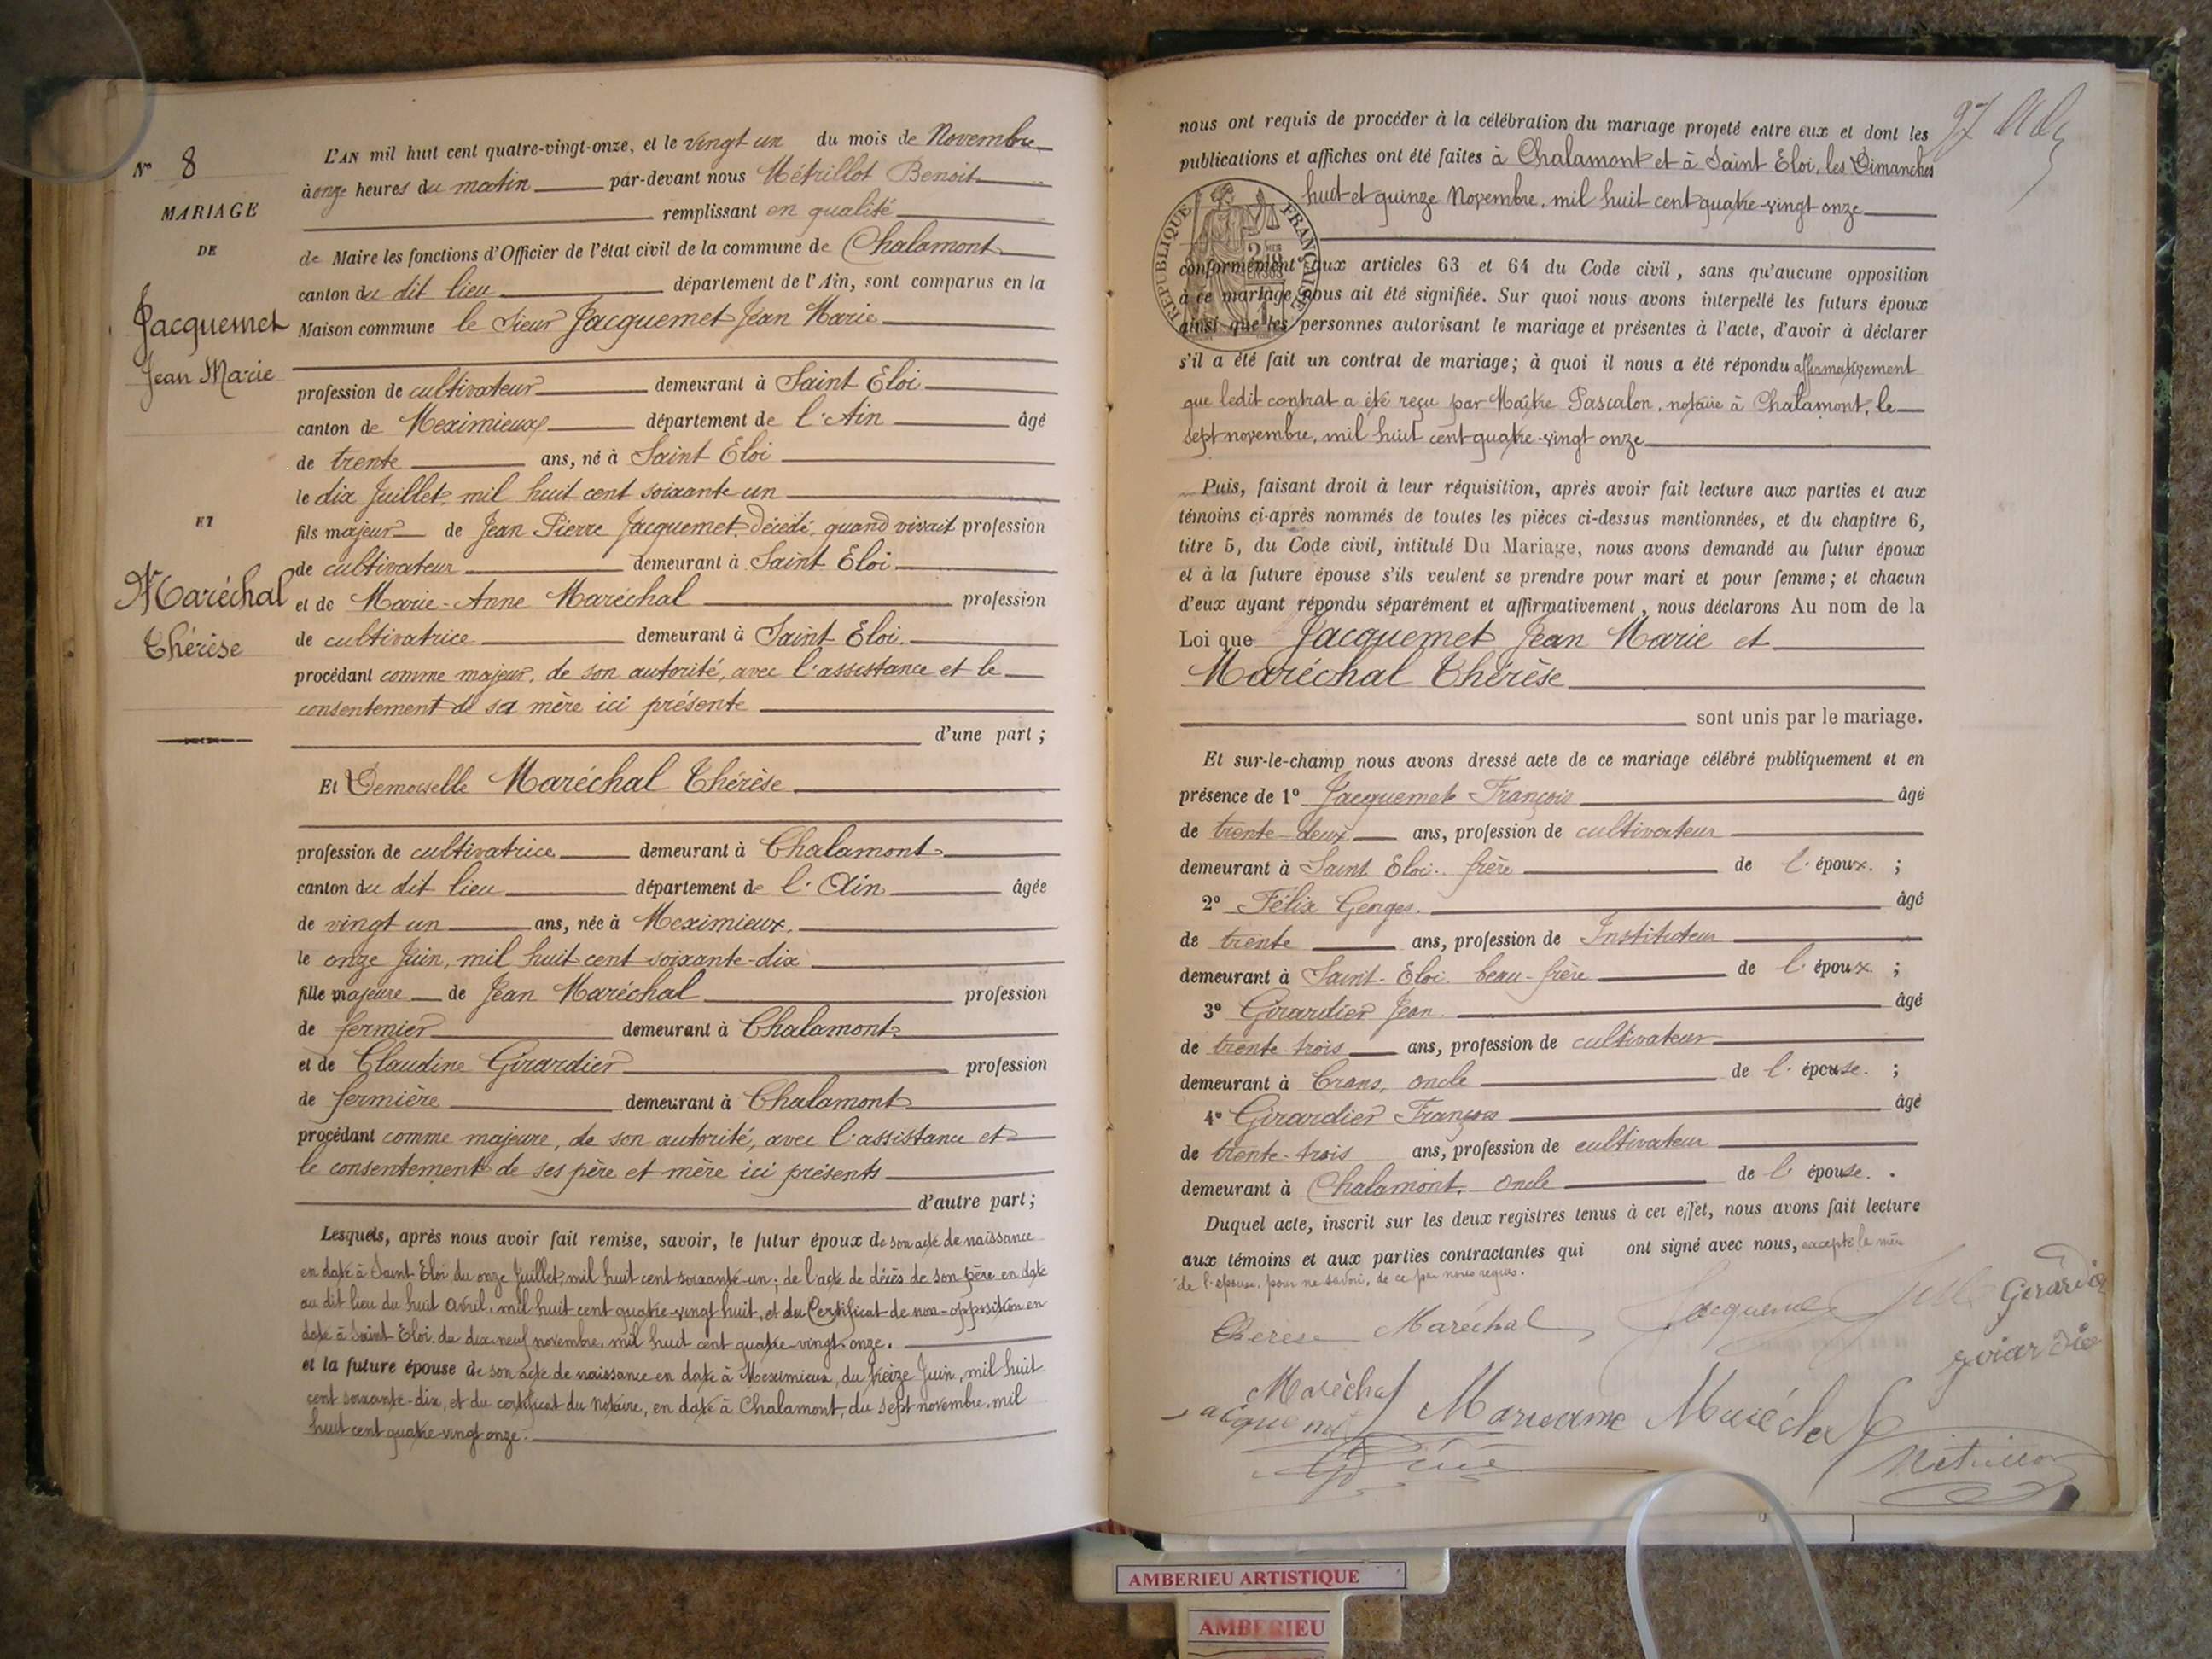 N° 8
MARIAGE
DE
Jacquemet
Jean Marie
ET
Maréchal
Thérèse
L'AN mil huit cent quatre-vingt-onze, et le vingt un du mois de Novembre
à onze heures du matin par-devant nous Métrillot Benoit
remplissant en qualité
de Maire les fonctions d'Officier de l'état civil de la commune de Chalamont
canton du dit lieu département de l'Ain, sont comparus en la
Maison commune le Sieur Jacquemet Jean Marie
profession de cultivateur demeurant à Saint Eloi
canton de Meximieux département de l'Ain âgé
de trente ans, né à Saint Eloi
le dix Juillet mil huit cent soixante-un
fils majeur de Jean Pierre Jacquemet, décédé, quand vivait profession
de cultivateur demeurant à Saint Eloi
et de Marie-Anne Maréchal profession
de cultivatrice demeurant à Saint Eloi.
procédant comme majeur, de son autorité, avec l'assistance et le
consentement de sa mère ici présente
d'une part ;
Et Demoiselle Maréchal Thérèse
profession de cultivatrice demeurant à Chalamont
canton du dit lieu département de l'Ain âgée
de vingt un ans, née à Meximieux.
le onze Juin, mil huit cent soixante-dix
fille majeure de Jean Maréchal profession
de fermier demeurant à Chalamont
et de Claudine Girardier profession
de fermière demeurant à Chalamont
procédant comme majeure, de son autorité, avec l'assistance et
le consentement de ses père et mère ici présents
d'autre part ;
Lesquels, après nous avoir fait remise, savoir, le futur époux de son acte de naissance
en date à Saint Eloi du onze Juillet mil huit cent soixante-un ; de l'acte de décès de son père en date
au dit lieu du huit Avril, mil huit cent quatre-vingt huit, et du Certificat de non-opposition en
date à Saint Eloi, du dix-neuf novembre, mil huit cent quatre-vingt onze.
et la future épouse de son acte de naissance en date à Meximieux, du treize Juin, mil huit
cent soixante-dix, et du certificat du notaire, en date à Chalamont, du sept novembre, mil
huit cent quatre-vingt onze.
97
nous ont requis de procéder à la célébration du mariage projeté entre eux et dont les
publications et affiches ont été faites à Chalamont et à Saint Eloi, les Dimanches
huit et quinze Novembre, mil huit cent quatre-vingt onze
RÉPUBLIQUE FRANÇAISE
conformément aux articles 63 et 64 du Code civil, sans qu'aucune opposition
à ce mariage nous ait été signifiée. Sur quoi nous avons interpellé les futurs époux
ainsi que les personnes autorisant le mariage et présentes à l'acte, d'avoir à déclarer
s'il a été fait un contrat de mariage ; à quoi il nous a été répondu affirmativement
que ledit contrat a été reçu par Maître Pascalon, notaire à Chalamont, le
sept novembre, mil huit cent quatre-vingt onze
Puis, faisant droit à leur réquisition, après avoir fait lecture aux parties et aux
témoins ci-après nommés de toutes les pièces ci-dessus mentionnées, et du chapitre 6,
titre 5, du Code civil, intitulé Du Mariage, nous avons demandé au futur époux
et à la future épouse s'ils veulent se prendre pour mari et pour femme ; et chacun
d'eux ayant répondu séparément et affirmativement, nous déclarons Au nom de la
Loi que Jacquemet Jean Marie et
Maréchal Thérèse
sont unis par le mariage.
Et sur-le-champ nous avons dressé acte de ce mariage célébré publiquement et en
présence de 1° Jacquemet François âgé
de trente-deux ans, profession de cultivateur
demeurant à Saint Eloi. frère de l'époux. ;
2° Félix Georges. âgé
de trente ans, profession de Instituteur
demeurant à Saint-Eloi. beau-frère de l'époux. ;
3° Girardier Jean. âgé
de trente-trois ans, profession de cultivateur
demeurant à Crans, oncle de l'épouse. ;
4° Girardier François âgé
de trente-trois ans, profession de cultivateur
demeurant à Chalamont, oncle de l'épouse. .
Duquel acte, inscrit sur les deux registres tenus à cet effet, nous avons fait lecture
aux témoins et aux parties contractantes qui ont signé avec nous, excepté la mère
de l'épouse, pour ne savoir, de ce par nous requis.
Therese Maréchal Jacquemet Girardier
Maréchal
Marieanne Maréchal
AMBERIEU ARTISTIQUE
AMBERIEU